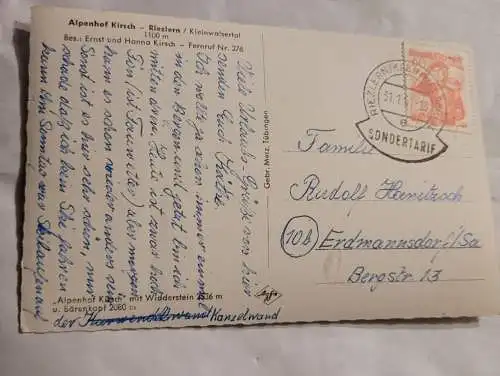 Alpenhof Kirsch – Riezlern / Kleinwalsertal
1100 m
Bes.: Ernst und Hanna Kirsch – Fernruf Nr. 276
Viele Urlaubs Grüße von hier
senden Euch
Ich wollte ja schon immer einmal
in den Bergen und jetzt bin ich
mitten drin. Heute ist zwar hier
Fön (ist Tauwetter) aber morgen
kann es schon wieder anders sein.
Sonst ist es hier sehr schön, nur
schade daß ich kein Ski fahren
kann. Am Sonntag war Skilauf
"Alpenhof Kirsch" mit Widderstein 2536 m
u. Bärenkopf 2080 m
der Kanzelwand
Gebr. Metz, Tübingen
Agfa
RIEZLERN (KLEINW
31.1.
e
SONDERTARIF
Familie
Rudolf Hanitzsch
10b Erdmannsdorf/Sa
Bergstr. 13